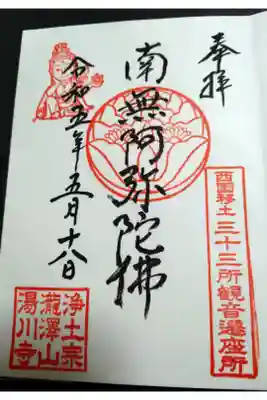 奉拝
西國移土三十三所観音遷座所
南無阿弥陀佛
令和五年五月十八日
浄土宗
瀧澤山
湯川寺